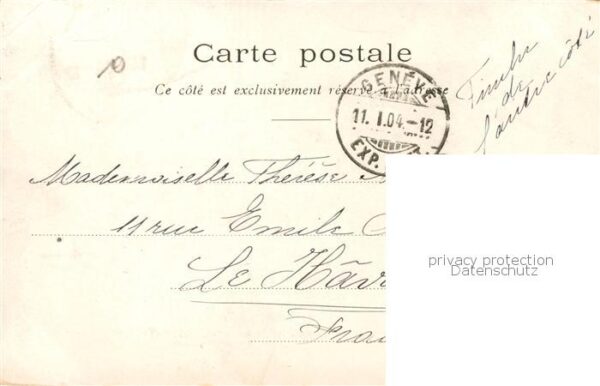 Carte postale
Ce côté est exclusivement réservé à l'adresse
GENÈVE
11. I.04.-12
EXP.
Timbre
de
l'autre côté
Mademoiselle Thérèse
11 rue Emile
Le Hâv
Fra
privacy protection
Datenschutz